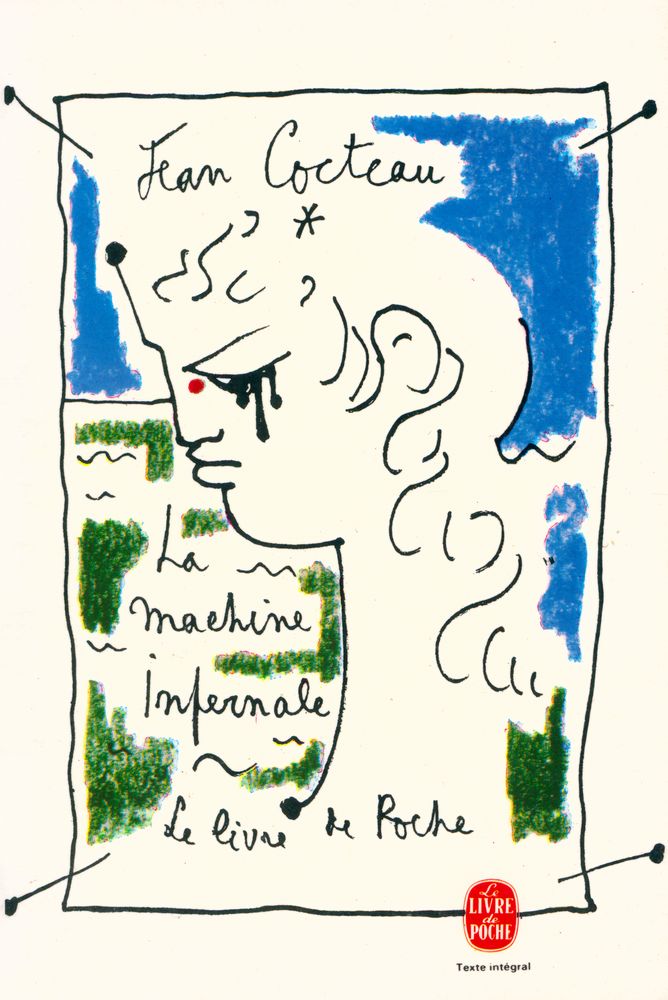 Jean Cocteau
*
La
machine
infernale
Le livre de Poche
Le
LIVRE
de
POCHE
Texte intégral